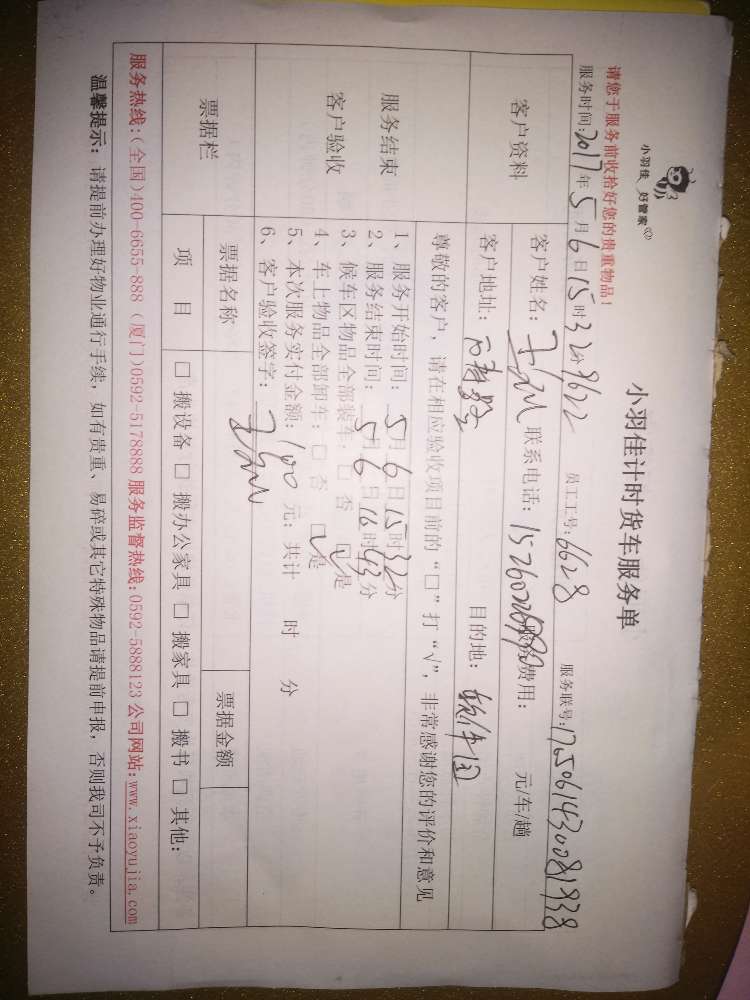 小羽佳 好管家
小羽佳计时货车服务单
请您于服务前收拾好您的贵重物品!
服务时间:2017年5月6日15时32分 员工工号:6628 服务联号:
客户资料
客户姓名: 联系电话: 服务费用: 元/车/趟
客户地址: 目的地:软件园
服务结束
客户验收
尊敬的客户,请在相应验收项目前的“□”打“√”,非常感谢您的评价和意见
1、服务开始时间:5月6日15时32分
2、服务结束时间:5月6日16时43分
3、候车区物品全部装车:□否 ☑是
4、车上物品全部卸车:□否 ☑是
5、本次服务实付金额:100元;共计 时 分
6、客户验收签字:
票据栏
票据名称 票据金额
项 目 □搬设备 □搬办公家具 □搬家具 □搬书 □其他:
服务热线:(全国)400-6655-888 (厦门)0592-5178888 服务监督热线:0592-5888123 公司网站:www.xiaoyujia.com
温馨提示:请提前办理好物业通行手续,如有贵重、易碎或其它特殊物品请提前申报,否则我司不予负责。